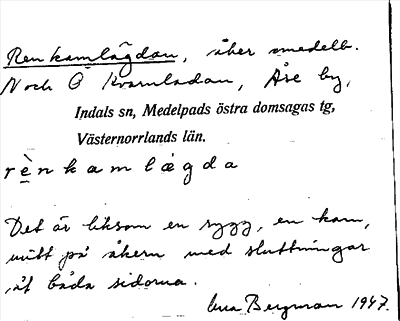 Renkamlägdan, åker omedelb.
N och Ö Kvarnladan, Åse by,
Indals sn, Medelpads östra domsagas tg,
Västernorrlands län.
rènkamlægda
Det är liksom en rygg, en kam,
mitt på åkern med sluttningar
åt båda sidorna.
Bergman 1947.